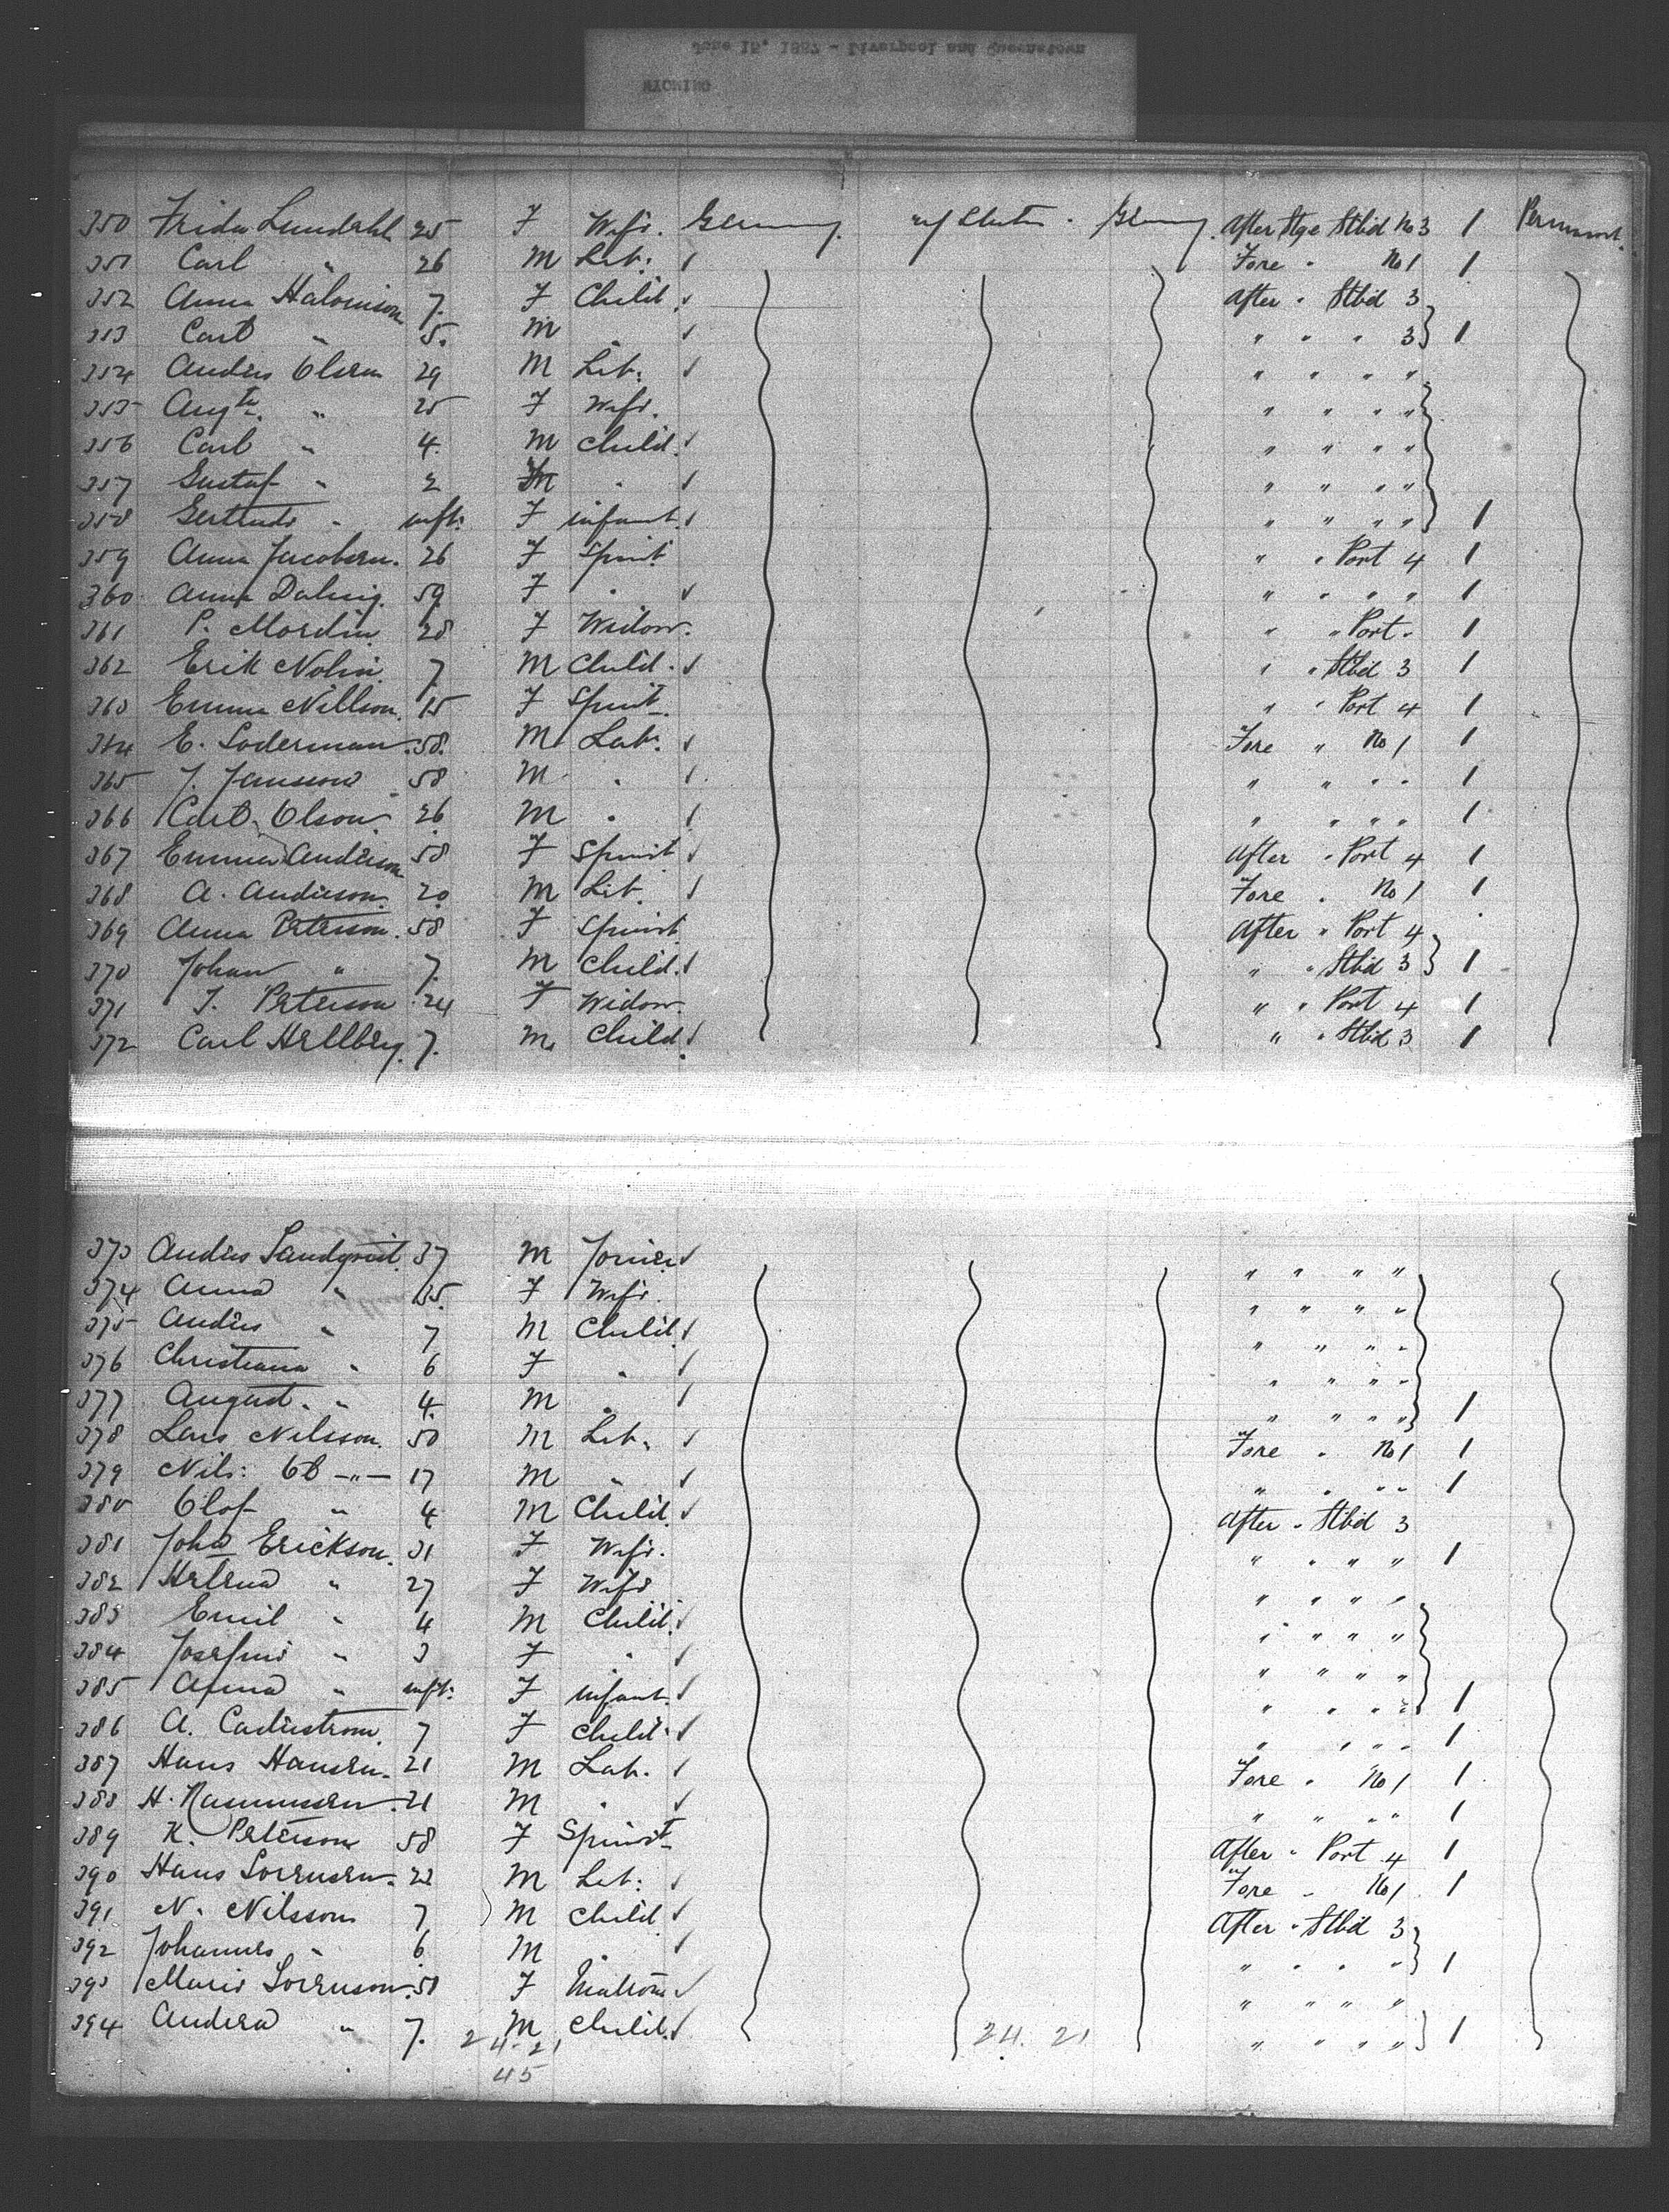 June 15, 1887 - Liverpool and Queenstown
WYOMING
350 Frida Lundahl 25 F Wife. Germany. U States. Germany. After Stge Stbd No 3 1 Permanent.
351 Carl " 26 M Lab: Fore " No 1 1
352 Anna Halonison 7. F Child After " Stbd 3
353 Carl " 5. M " " " " 3 1
354 Anders Olsen 29 M Lab: " " " "
355 Augta. " 25 F Wife. " " " "
356 Carl " 4. M Child. " " " "
357 Gustaf " 2 M " " " " "
358 Gertrude " inft: F infant. " " " " 1
359 Anna Jacobsen. 26 F Spinst " " Port 4 1
360 Anna Dahig. 59 F " " " " " 1
361 P. Mordin 28 F Widow. " " Port " 1
362 Erik Nolin. 7. M Child. " " Stbd 3 1
363 Emma Nillson. 15 F Spinst. " " Port 4 1
364 E. Soderman. 58. M Lab. Fore " No 1 1
365 J. Jansson 58 M " " " " " 1
366 Carl Olson 26 M " " " " " 1
367 Emma Anderson 58 F Spinst After " Port 4 1
368 A. Anderson. 20 M Lab. Fore " No 1 1
369 Anna Peterson. 58 F Spinst After " Port 4
370 Johan " 7. M Child. " " Stbd 3 1
371 J. Peterson 24 F Widow. " " Port 4 1
372 Carl Hellberg. 7. M. Child. " " Stbd 3 1
373 Anders Sandqvist. 37 M Joiner " " " "
374 Anna " 35 F Wife. " " " "
375 Anders " 7 M Child " " " "
376 Christiana " 6 F " " " " "
377 August. " 4. M " " " " " 1
378 Lars Nilsson. 50 M Lab. Fore " No 1 1
379 Nils: Ol -"- 17 M " " " " " 1
380 Olof " 4 M Child. After " Stbd 3
381 Joha Erickson. 31 F Wife. " " " " 1
382 Helena " 27 F Wife " " " "
383 Emil " 4 M Child. " " " "
384 Josefine " 3 F " " " " "
385 Anna " inft: F infant. " " " " 1
386 A. Cederstrom. 7 F Child. " " " " 1
387 Hans Hansen. 21 M Lab. Fore " No 1 1
388 H. Rasmussen. 21 M " " " " " 1
389 K. Peterson 58 F Spinst. After " Port 4 1
390 Hans Sorensen. 22 M Lab: Fore " No 1 1
391 N. Nilsson 7 M Child After " Stbd 3
392 Johannes " 6. M " " " " " 1
393 Marie Sorenson. 58 F Matron " " " "
394 Andera " 7. M Child. " " " " 1
24-21 24. 21
45